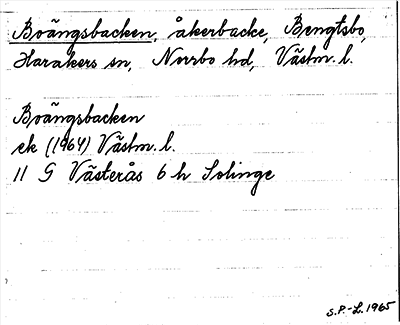 Boängsbacken, åkerbacke, Bengtsbo,
Harakers sn, Norrbo hd, Västm. l.
Boängsbacken
ek (1964) Västm. l.
11 G Västerås 6 h Solinge
S.P.-L. 1965